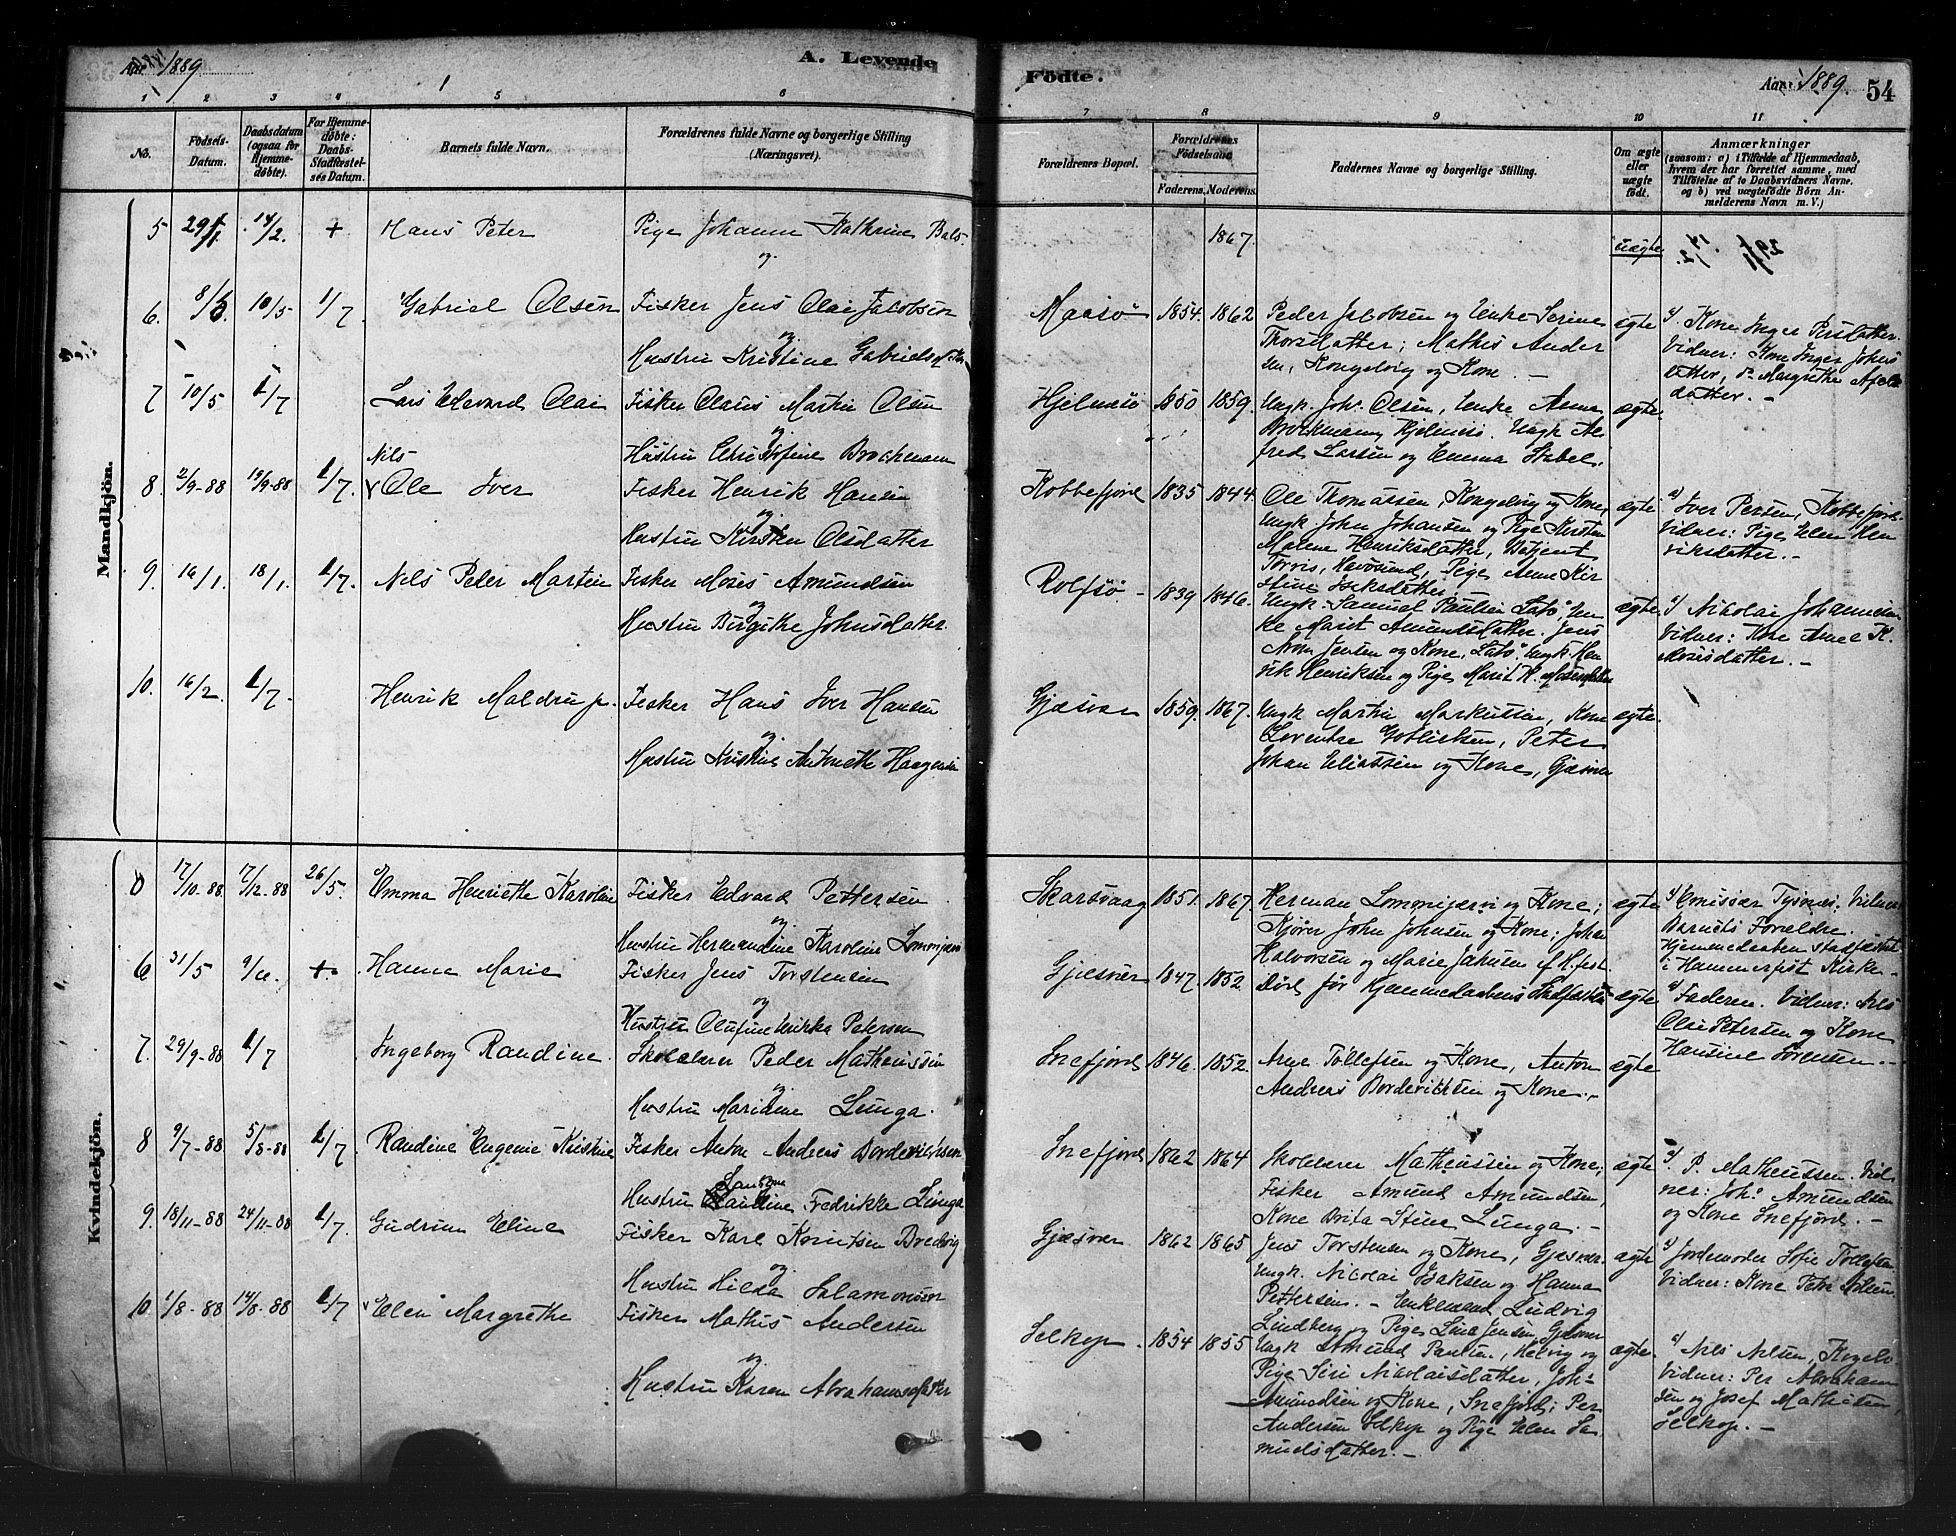 Aar 1889
A. Levende
Födte.
Aar 1889.
54
1 2 3 4 5 6 7 8 9 10 11
No.
Födsels-Datum.
Daabsdatum (ogsaa for Hjemmedøbte).
For Hjemmedøbte: Daabs-Stadfæstelses Datum.
Barnets fulde Navn.
Forældrenes fulde Navne og borgerlige Stilling (Næringsvei).
Forældrenes Bopæl.
Forældrenes Födselsaar
Faderens. Moderens.
Faddernes Navne og borgerlige Stilling.
Om ægte eller uægte født.
Anmærkninger
(saasom: a) i Tilfælde af Hjemmedaab, hvem der har forrettet samme, med Tilføielse af to Daabsvidners Navne, og b) ved uægtefødte Børn Anmelderens Navn m. V.)
Mandkjön.
5 29/1. 14/2. + Hans Peter Pige Johanne Kathrine Bals-
og
1867. uægte
6. 10/5 1/7 Gabriel Olsen Fisker Jens Olai Jacobsen
og
Hustru Kristine Gabrielsdatter
Maasø 1854. 1862 Peder Jacobsen og Enke Serine
Thorsdatter; Mathis Ander
sen, Kongsvig og Kone. –
ægte
Kone Inger Persdatter.
Vidner: Kone Inger Johns
datter, Margrethe
datter. –
7 10/5 1/7 Lars Edevard Olai Fisker Claus Martin Olsen
og
Hustru Christofine Brockmann
Hjelmsø 1850 1859. Ungk. Joh. Olsen, Enke Anna
Brockmann, Hjelmsø. Ungk Al
fred Larsen og Emma Stabel.
ægte.
8. 2/9-88 19/9-88 1/7. Nils
Ole Iver Fisker Henrik Hansen
og
Hustru Kirsten Olsdatter
Kobbefjord 1835 1844 Ole Thomassen, Kongsvig og Kone,
Ungk John Johansen og Pige Kirsten
Malene Henriksdatter, Betjent
Torvis, Havøsund, Pige Anne Kir
stine Isaksdatter. –
ægte
a) Iver Persen, Kobbefjord.
Vidner: Pige Elen Hen
riksdatter. –
9. 16/1. 18/1. 1/7. Nils Peter Martin Fisker Moses Amundsen
og
Hustru Birgithe Johnsdatter.
Rolfsø – 1839 1846. Ungk. Samuel Paulsen En
ke Marit Amundsdatter. Jens
Jensen og Kone, Ungk. Hen
rik Henriksen og Pige Marit K. Mosesdatter
ægte
a) Nikolai Johannesen
Vidner: Kone Anne K.
Mosesdatter. –
10. 16/2. 1/7 Henrik Maldrup. Fisker Hans Iver Hansen
og
Hustru Kristine Antonette Haagensen
Gjæsvær 1859. 1867. Ungk Martin Markussen, Kone
Lorentse Gotliebsen, Peter
Johan Eliassen og Kone, Gjæsvær
ægte.
Kvindekjön.
17/10-88 17/12-88 26/5. Emma Henriette Karoline Fisker Edvard Pettersen
og
Hustru Hermandine Karoline Lomonjærvi
Skarsvaag 1851. 1867. Herman Lomonjærvi og Kone;
Kjører John Johnsen og Kone; Johan
Halvorsen og Marie Jakosen af H.fest.
ægte
Emissær Tysnes. Vidner
Barnets Forældre.
Hjemmedaaben stadfæstet
i Hammerfest Kirke –
6 31/5 +. Hanna Marie Fisker Jens Torstensen
og
Hustru Olufine Petersen
Gjesvær 1847. 1852. Død før Hjemmedaabens Stadfæstelse
ægte
a) Faderen. Vidner: Nils
Olai Petersen og Kone
Hansine Sørensen. –
7. 29/9-88 1/7 Ingeborg Randine. Skolelærer Peder Matheussen
og
Hustru Maridine Lunga.
Snefjord 1846. 1852. Arne Tollefsen og Kone, Anton
Andreas Bordevichsen og Kone. –
ægte
8 9/7-88 5/8-88 1/7 Randine Eugenie Kristine Fisker Anton Andreas Bordevichsen
Hustru Fredrikke Lunga
Snefjord 1862 1864 Skolelærer Matheussen og Kone;
Fisker Amund Amundsen,
Kone Brita Stine Lunga. –
ægte
a) P. Matheussen. Vid
ner: Johs Amundsen
og Kone Snefjord. –
9. 18/11-88 24/11-88 1/7. Gudrun Eline Fisker Karl Knutsen Bredvig
og
Hustru Hilda Salamonsen
Gjæsvær 1862 1865 Jens Torstensen og Kone, Gjæsvær.
Ungk. Nicolai Isaksen og Hanna
Pettersen. – Enkemand Ludvig
Lindberg og Pige Lina Jensen, Gjesvær
ægte
a) Jordemoder Sofie Tollefsen
Vidner: Kone Petra Nilsen.
10. 1/8-88 14/8-88 1/7 Elen Margrethe Fisker Mathis Andersen
og
Hustru Karen Abrahamsdatter
Selkop. 1854 1855 Ungk Amund Paulsen, Helvig og
Pige Siri Nikolaisdatter, Johs
Amundsen og Kone, Snefjord; Per
Andersen Selkop og Pige Elen Sa
muelsdatter. –
ægte.
a) Nils Nilsen,
Vidner: Per Abraham
sen og Josef Mathisen,
Selkop. –